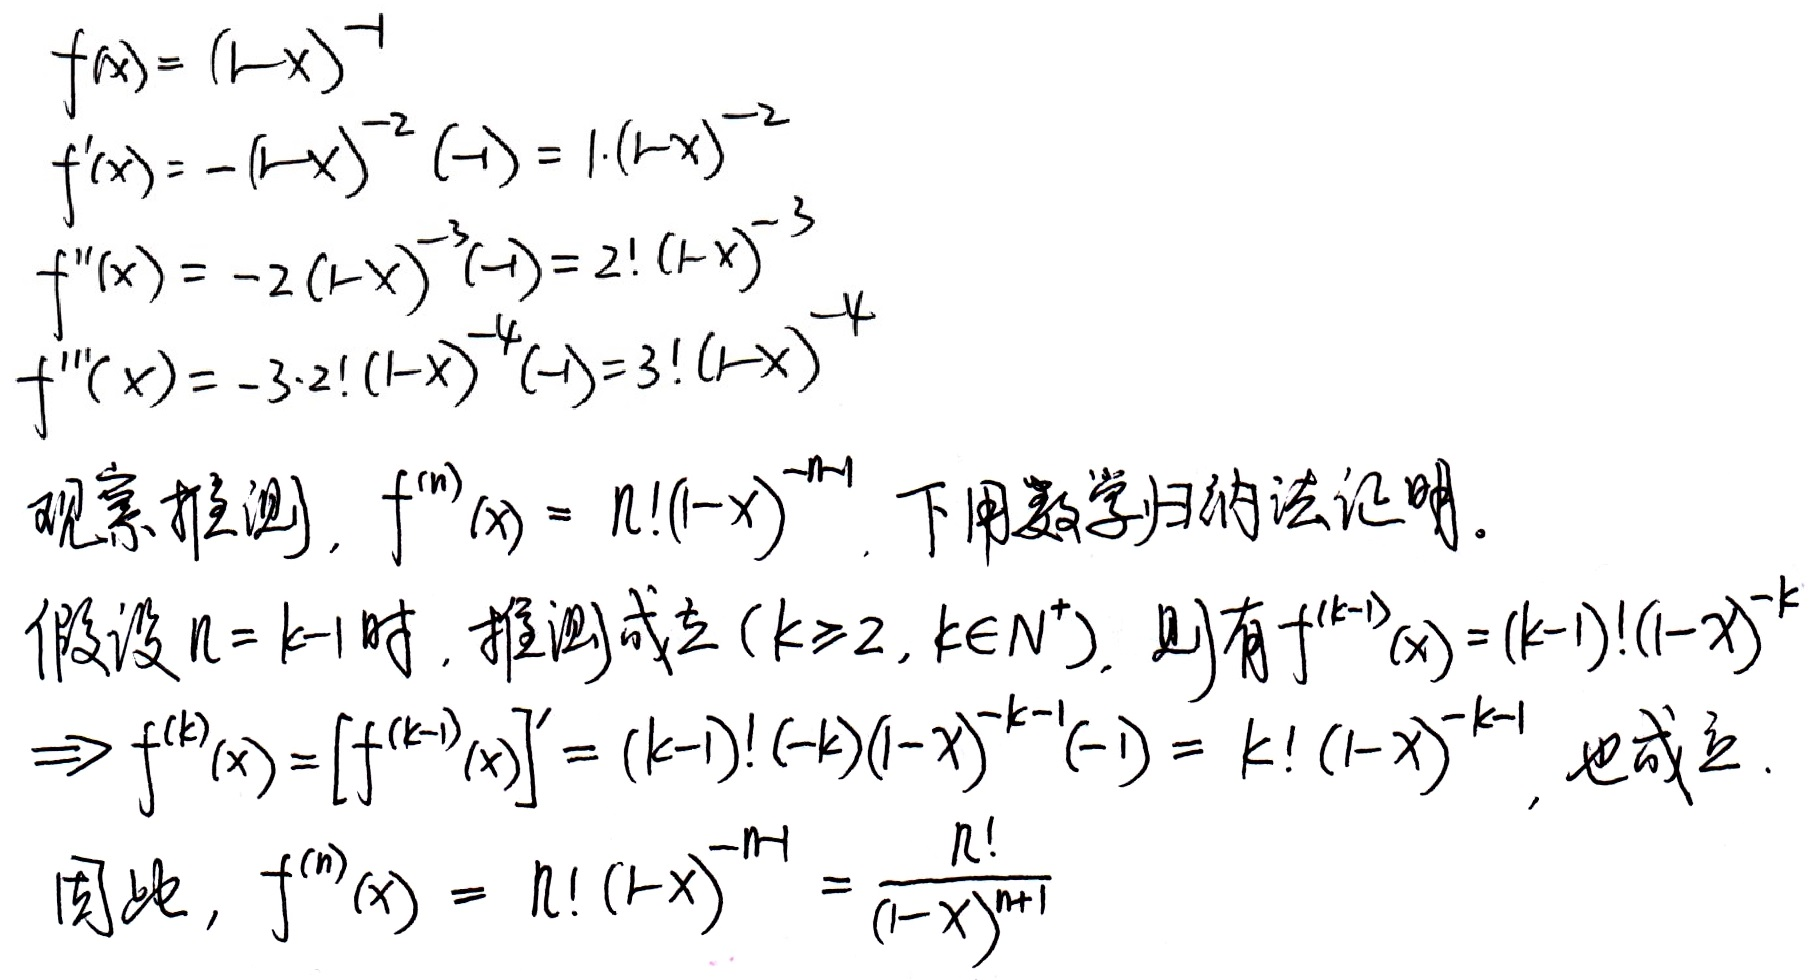 f(x) = (1-x)^{-1}
f'(x) = -(1-x)^{-2} (-1) = 1·(1-x)^{-2}
f''(x) = -2(1-x)^{-3}(-1) = 2! (1-x)^{-3}
f'''(x) = -3·2! (1-x)^{-4}(-1) = 3! (1-x)^{-4}
观察推测, f^{(n)}(x) = n!(1-x)^{-n-1}. 下用数学归纳法证明。
假设 n = k-1 时, 推测成立 (k≥2, k∈N^+), 则有 f^{(k-1)}(x) = (k-1)!(1-x)^{-k}
⇒ f^{(k)}(x) = [f^{(k-1)}(x)]' = (k-1)! (-k)(1-x)^{-k-1}(-1) = k! (1-x)^{-k-1}, 也成立.
因此, f^{(n)}(x) = n! (1-x)^{-n-1} = \frac{n!}{(1-x)^{n+1}}